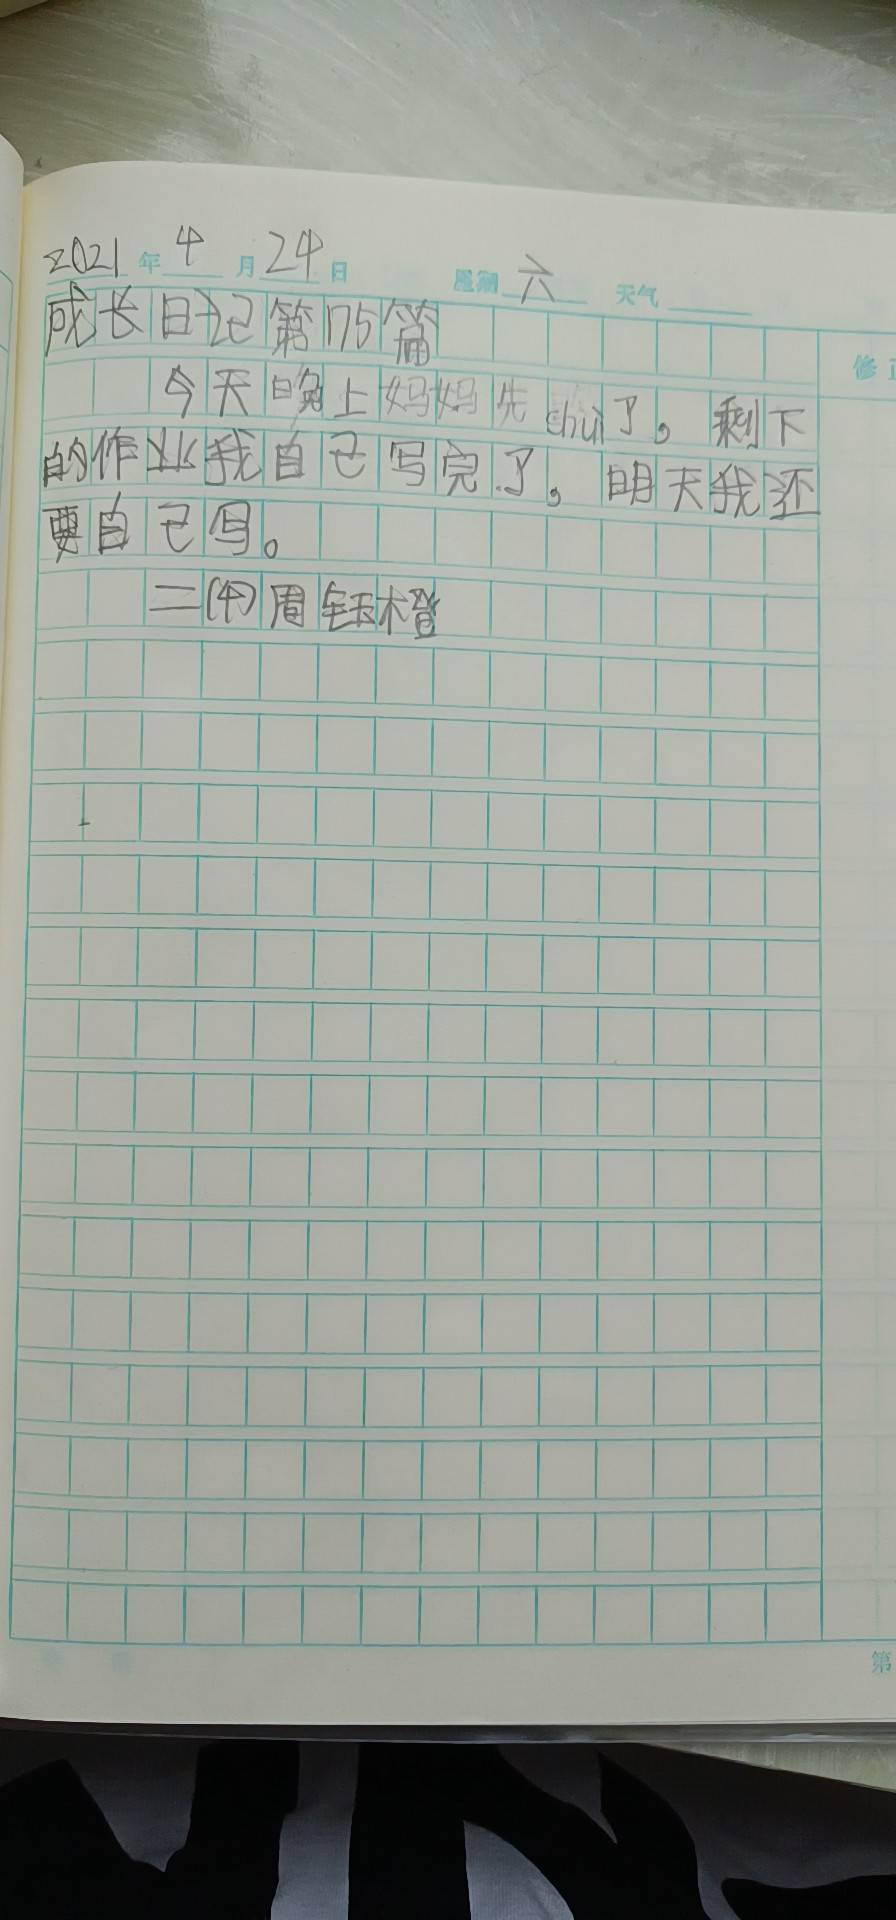 2021年4月24日 星期六 天气
成长日记第175篇
修正
今天晚上妈妈先chui了。剩下
的作业我自己写完了。明天我还
要自己写。
二(4)周钰橙
第